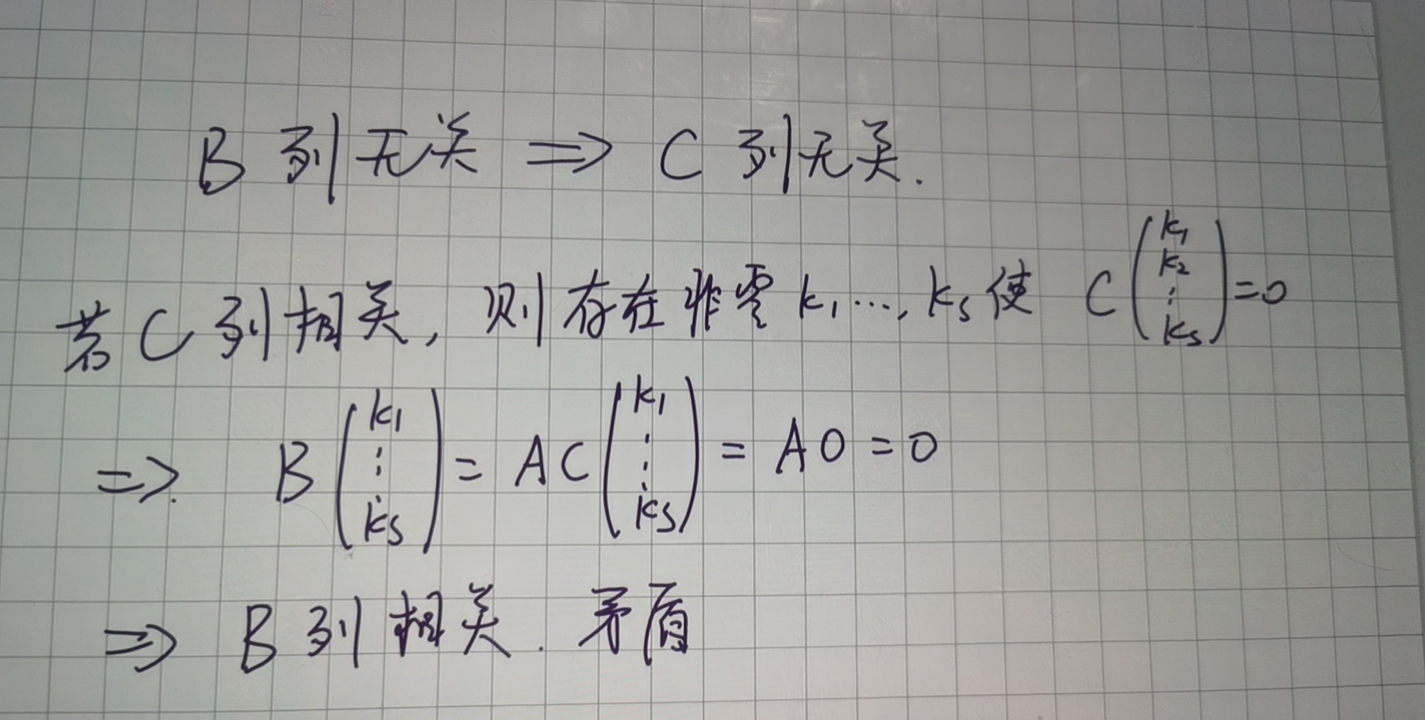 B 列无关 ⇒ C 列无关.
若 C 列相关, 则存在非零 k₁…, kₛ 使 C(k₁ k₂ ⋮ kₛ)=0
⇒. B(k₁ ⋮ kₛ) = AC(k₁ ⋮ kₛ) = A0 = 0
⇒ B 列相关. 矛盾